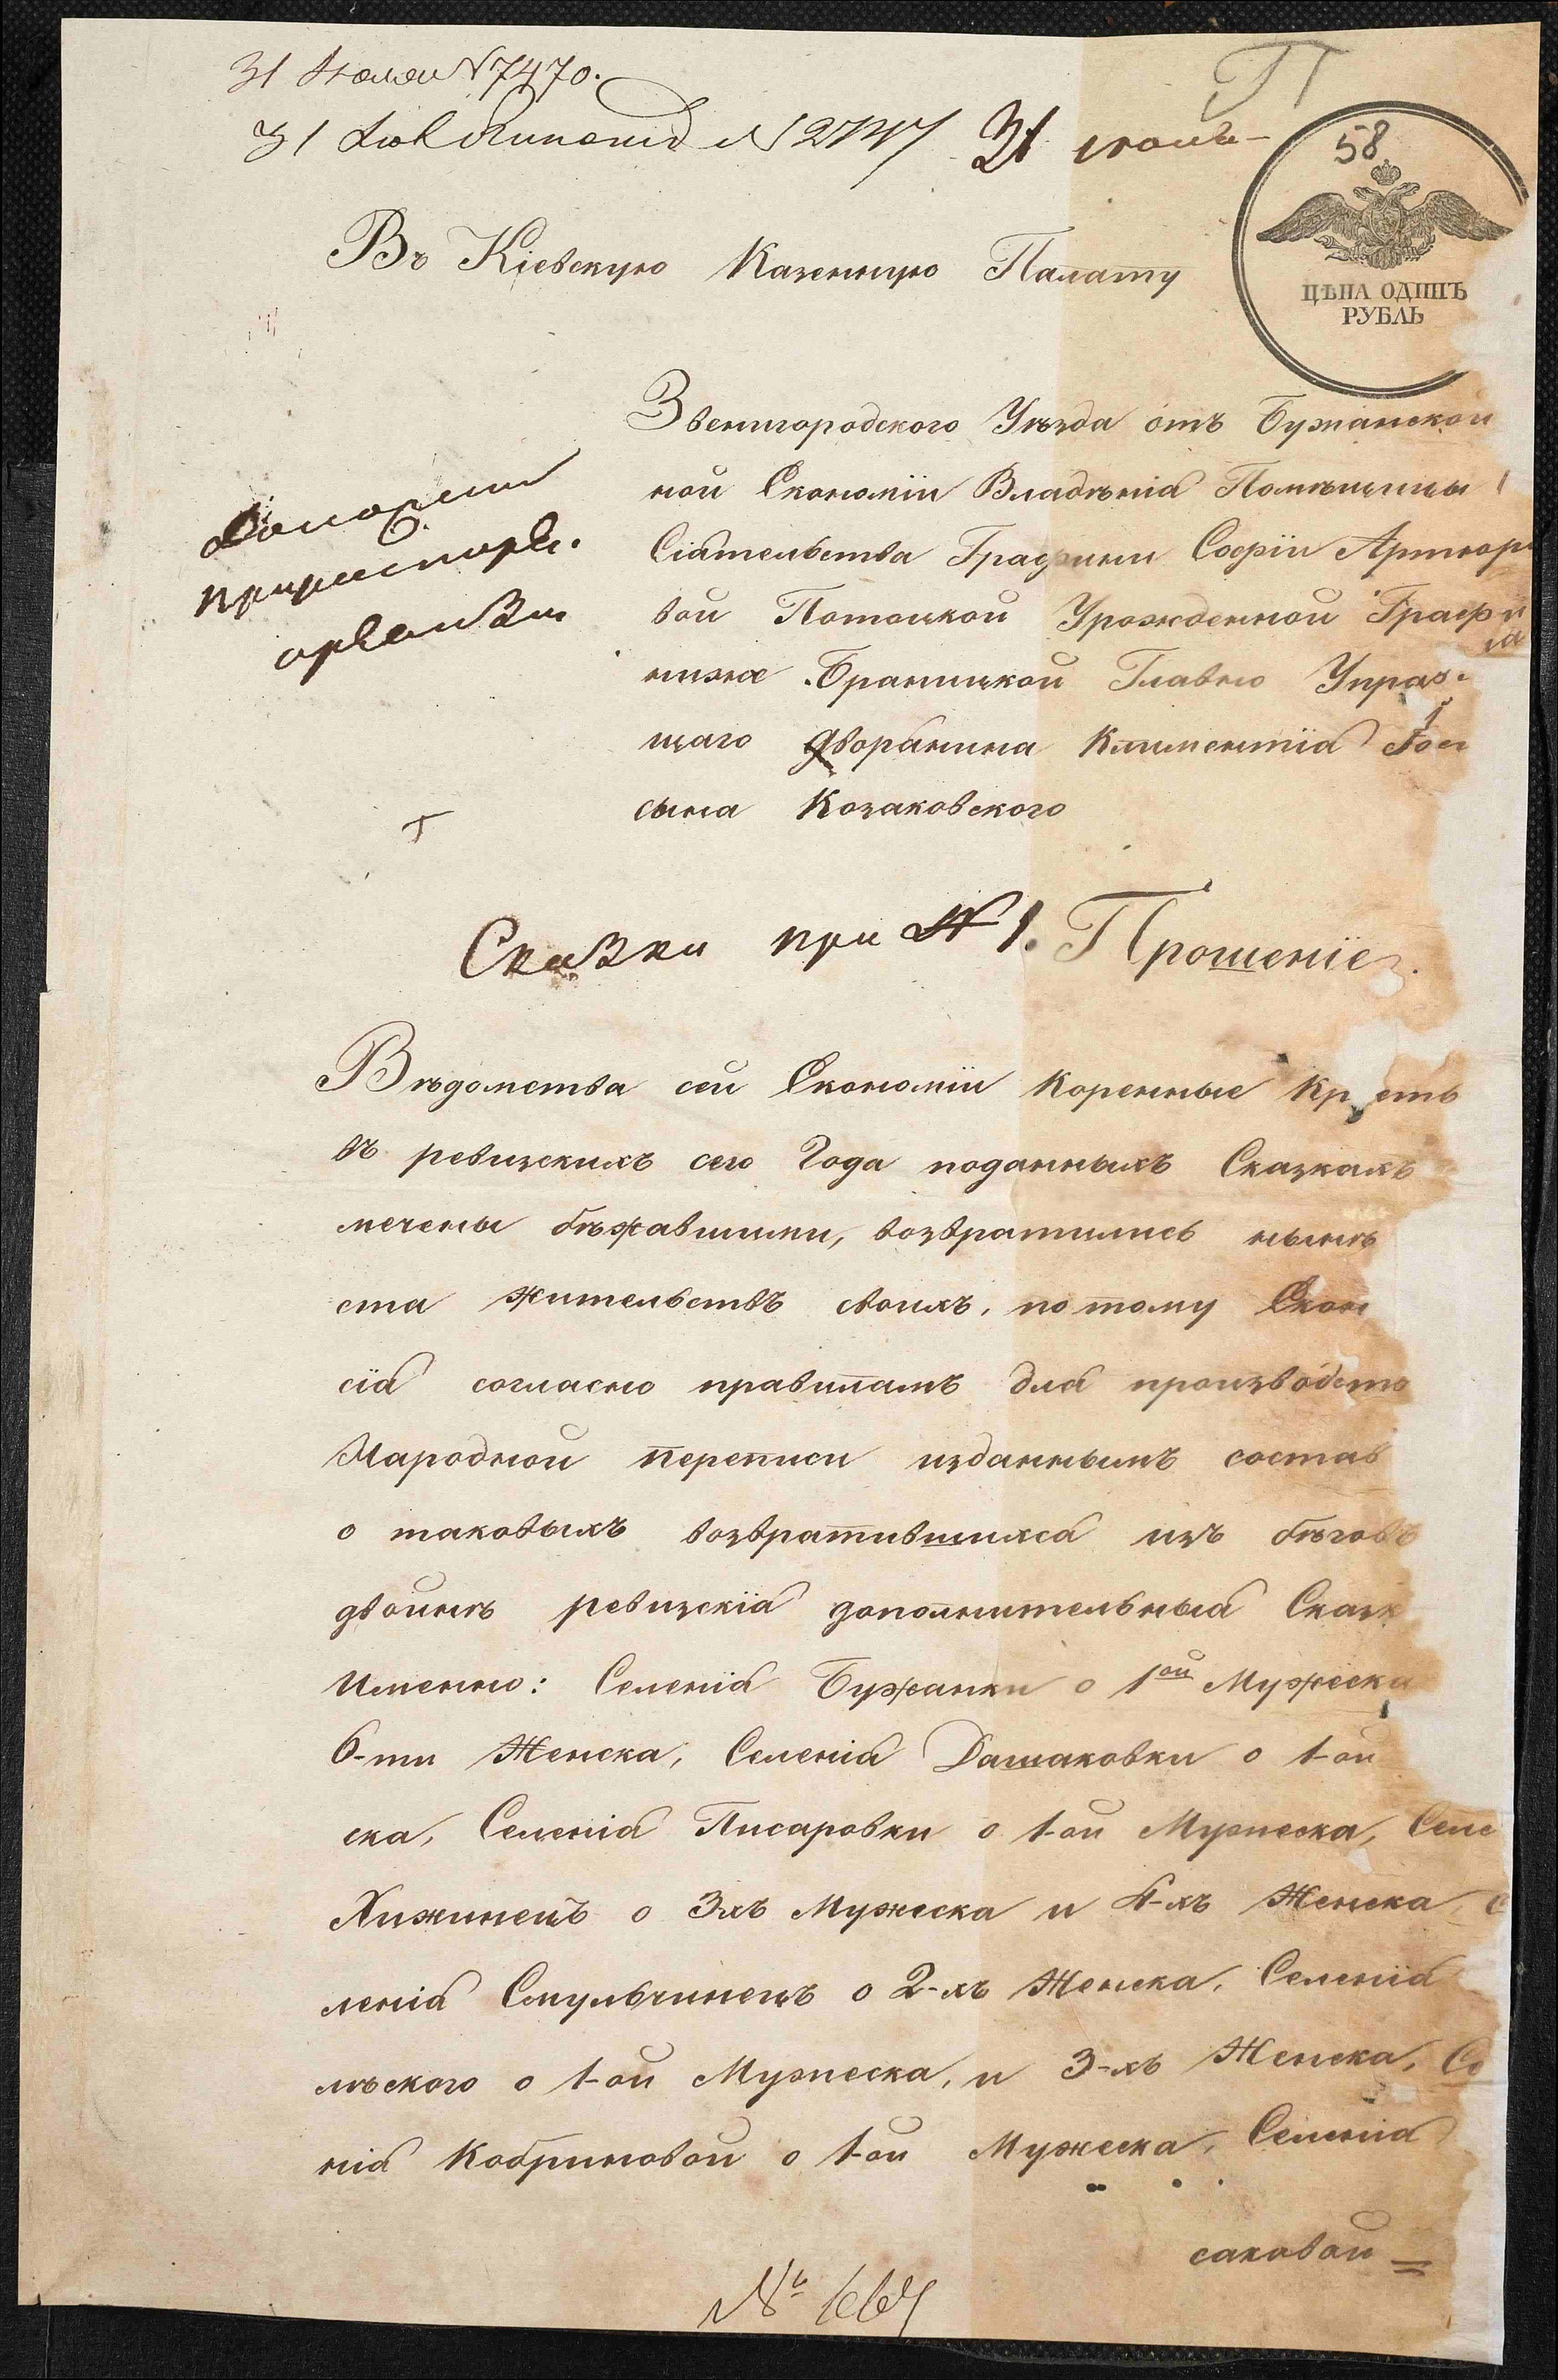 31 Іюля N 7470.
31 Іюл N 2747 31 іюль
58
ЦѢНА ОДИНЪ
РУБЛЬ
Въ Кіевскую Казенную Палату
Звенигородского Уѣзда отъ Бужанской
ной Економіи Владѣнія Помѣщицы
Сіятельства Графини Софіи Артюро
вой Потоцкой Урожденной Графи
нижна Браницкой Главно Управ
щаго Дворянина Климентія
сына Козаковского
Сказки при N 1. Прошеніе.
Вѣдомства сей Економіи коренные Кр еть
въ ревизскихъ сего Года поданныхъ Сказкахъ
мечены бѣжавшими, возвратились нынѣ
ста жительствъ своихъ, по тому Екон
сія согласно правиламъ для производство
Народной переписи изданнымъ состав
о таковыхъ возвратившихся изъ бѣговъ
двойнѣ ревизскія дополнительныя Сказк
Именно: Селенія Бужанки о 1ой Мужеска
6-ти Женска, Селенія Дашаковки о 1-ой
ска, Селенія Писаровки о 1-ой Мужеска, Селе
Хижинецъ о 3хъ Мужеска и 4-хъ Женска, С
ленія Смульчинецъ о 2-хъ Женска, Селенія
мѣского о 1-ой Мужеска, и 3-хъ Женска, Се
нія Кобриновой о 1-ой Мужеска, Селенія
саковой